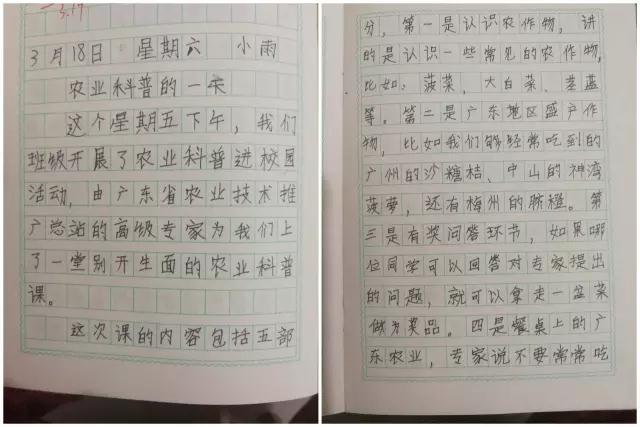 3.17
3月18日 星期六 小雨
农业科普的一天
这个星期五下午，我们
班级开展了农业科普进校园
活动，由广东省农业技术推
广总站的高级专家为我们上
了一堂别开生面的农业科普
课。
这次课的内容包括五部
分，第一是认识农作物，讲
的是认识一些常见的农作物，
比如：菠菜，大白菜、芝蓝
等。第二是广东地区盛产作
物，比如我们够经常吃到的
广州的沙糖桔、中山的神湾
菠萝，还有梅州的脐橙。第
三是有奖问答环节，如果哪
位同学可以回答对专家提出
的问题，就可以拿走一盆菜
做为奖品。四是餐桌上的广
东农业，专家说不要常常吃